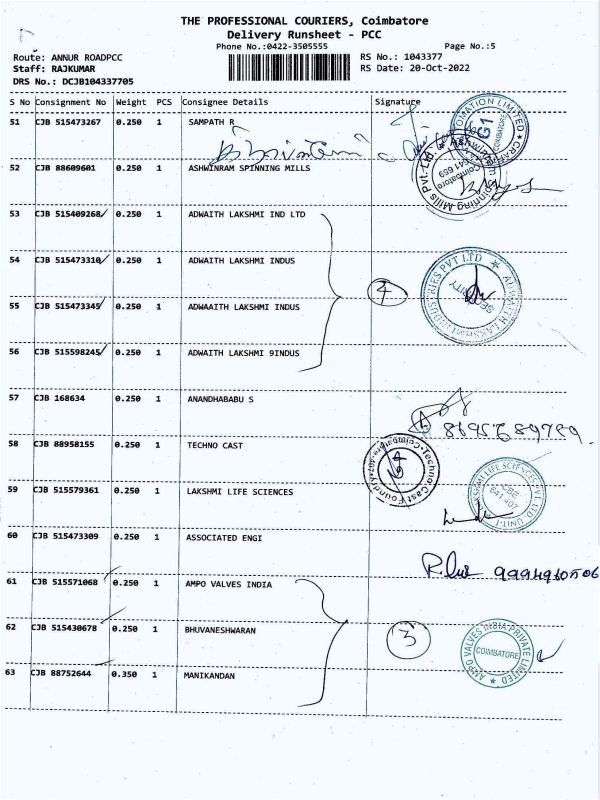 THE PROFESSIONAL COURIERS, Coimbatore
Delivery Runsheet - PCC
Phone No.:0422-3505555
Page No.:5
Route: ANNUR ROADPCC
RS No.: 1043377
Staff: RAJKUMAR
RS Date: 20-Oct-2022
DRS No.: DCJB104337705
S No Consignment No Weight PCS Consignee Details Signature
51 CJB 515473267 0.250 1 SAMPATH R
52 CJB 88609601 0.250 1 ASHWINRAM SPINNING MILLS
53 CJB 515409268 0.250 1 ADWAITH LAKSHMI IND LTD
54 CJB 515473310 0.250 1 ADWAITH LAKSHMI INDUS
4
55 CJB 515473345 0.250 1 ADWAAITH LAKSHMI INDUS
56 CJB 515598245 0.250 1 ADWAITH LAKSHMI 9INDUS
57 CJB 168634 0.250 1 ANANDHABABU S
58 CJB 88958155 0.250 1 TECHNO CAST
59 CJB 515579361 0.250 1 LAKSHMI LIFE SCIENCES
60 CJB 515473309 0.250 1 ASSOCIATED ENGI
61 CJB 515571068 0.250 1 AMPO VALVES INDIA
62 CJB 515430678 0.250 1 BHUVANESHWARAN
3
AMPO VALVES INDIA PRIVATE LIMITED
COIMBATORE
63 CJB 88752644 0.350 1 MANIKANDAN